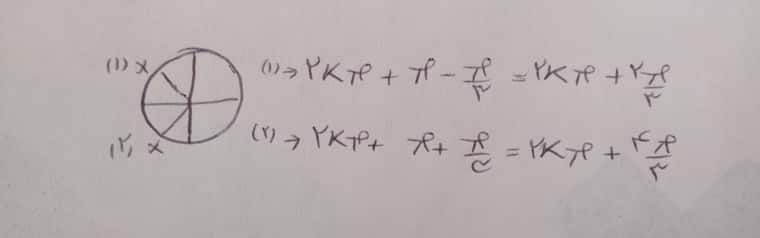 (۱) x (۱) → ۲Kπ + π - π/۳ = ۲Kπ + ۲π/۳
(۲) x (۲) → ۲Kπ + π + π/۳ = ۲Kπ + ۴π/۳